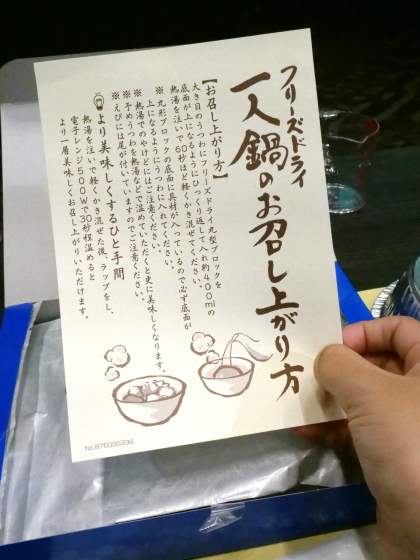 フリーズドライ
一人鍋のお召し上がり方
【お召し上がり方】
大き目のうつわにフリーズドライ丸型ブロックを
底面が上になるようにひっくり返して入れ約400mlの
熱湯を注いで60秒ほど軽くかき混ぜてください。
※丸形ブロックの底面に具材が入っているので必ず底面が
上になるようにうつわに入れてください。
※熱湯でのやけどにはご注意ください。
※予めうつわを熱湯などで温めていただくと更に美味しくなります。
※えびには尾が付いていますのでご注意ください。
より美味しくするひと手間
熱湯を注いで軽くかき混ぜた後、ラップをし、
電子レンジ500Wで30秒程温めると
より一層美味しくお召し上がりいただけます。
No.876000336